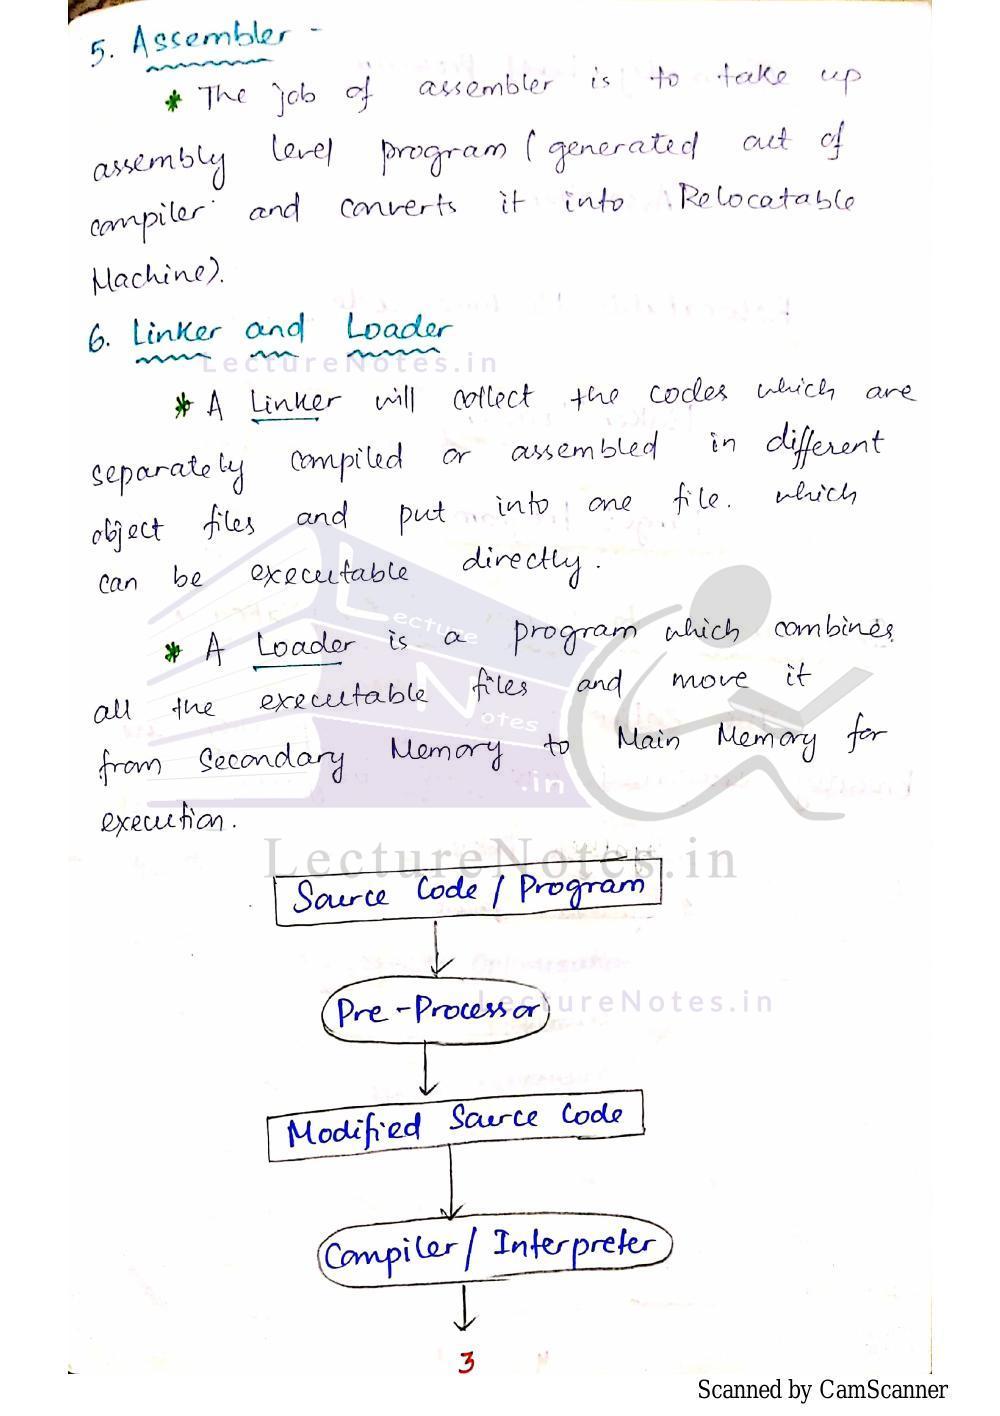 5. Assembler -
* The job of assembler is to take up
assembly level program (generated out of
compiler and converts it into Relocatable
Machine).
6. Linker and Loader
LectureNotes.in
* A Linker will collect the codes which are
separately compiled or assembled in different
object files and put into one file. which
can be executable directly.
Lecture
* A Loader is a program which combines
all the executable files and move it
Notes
from Secondary Memory to Main Memory for
.in
execution.
LectureNotes.in
Source Code / Program
Pre-Processor
LectureNotes.in
Modified Source Code
Compiler / Interpreter
3
Scanned by CamScanner